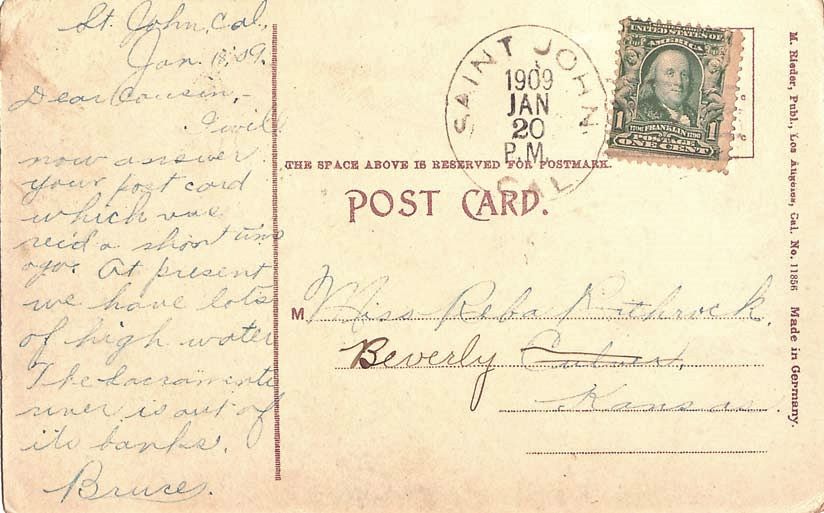 St. John, Cal,
Jan. 18, 09.
Dear Cousin,-
I will
now answer
your post card
which was
rec'd a short time
ago. At present
we have lots
of high water
The Sacramento
river is out of
its banks.
Bruce.
SAINT JOHN
1909
JAN
20
P.M.
CAL.
UNITED STATES OF
AMERICA
1 1706 FRANKLIN 1790 1
POSTAGE
ONE CENT
THE SPACE ABOVE IS RESERVED FOR POSTMARK.
POST CARD.
M Miss Reba Rothrock.
Beverly Culver,
Kansas.
M. Rieder, Publ., Los Angeles, Cal. No. 11856 Made in Germany.